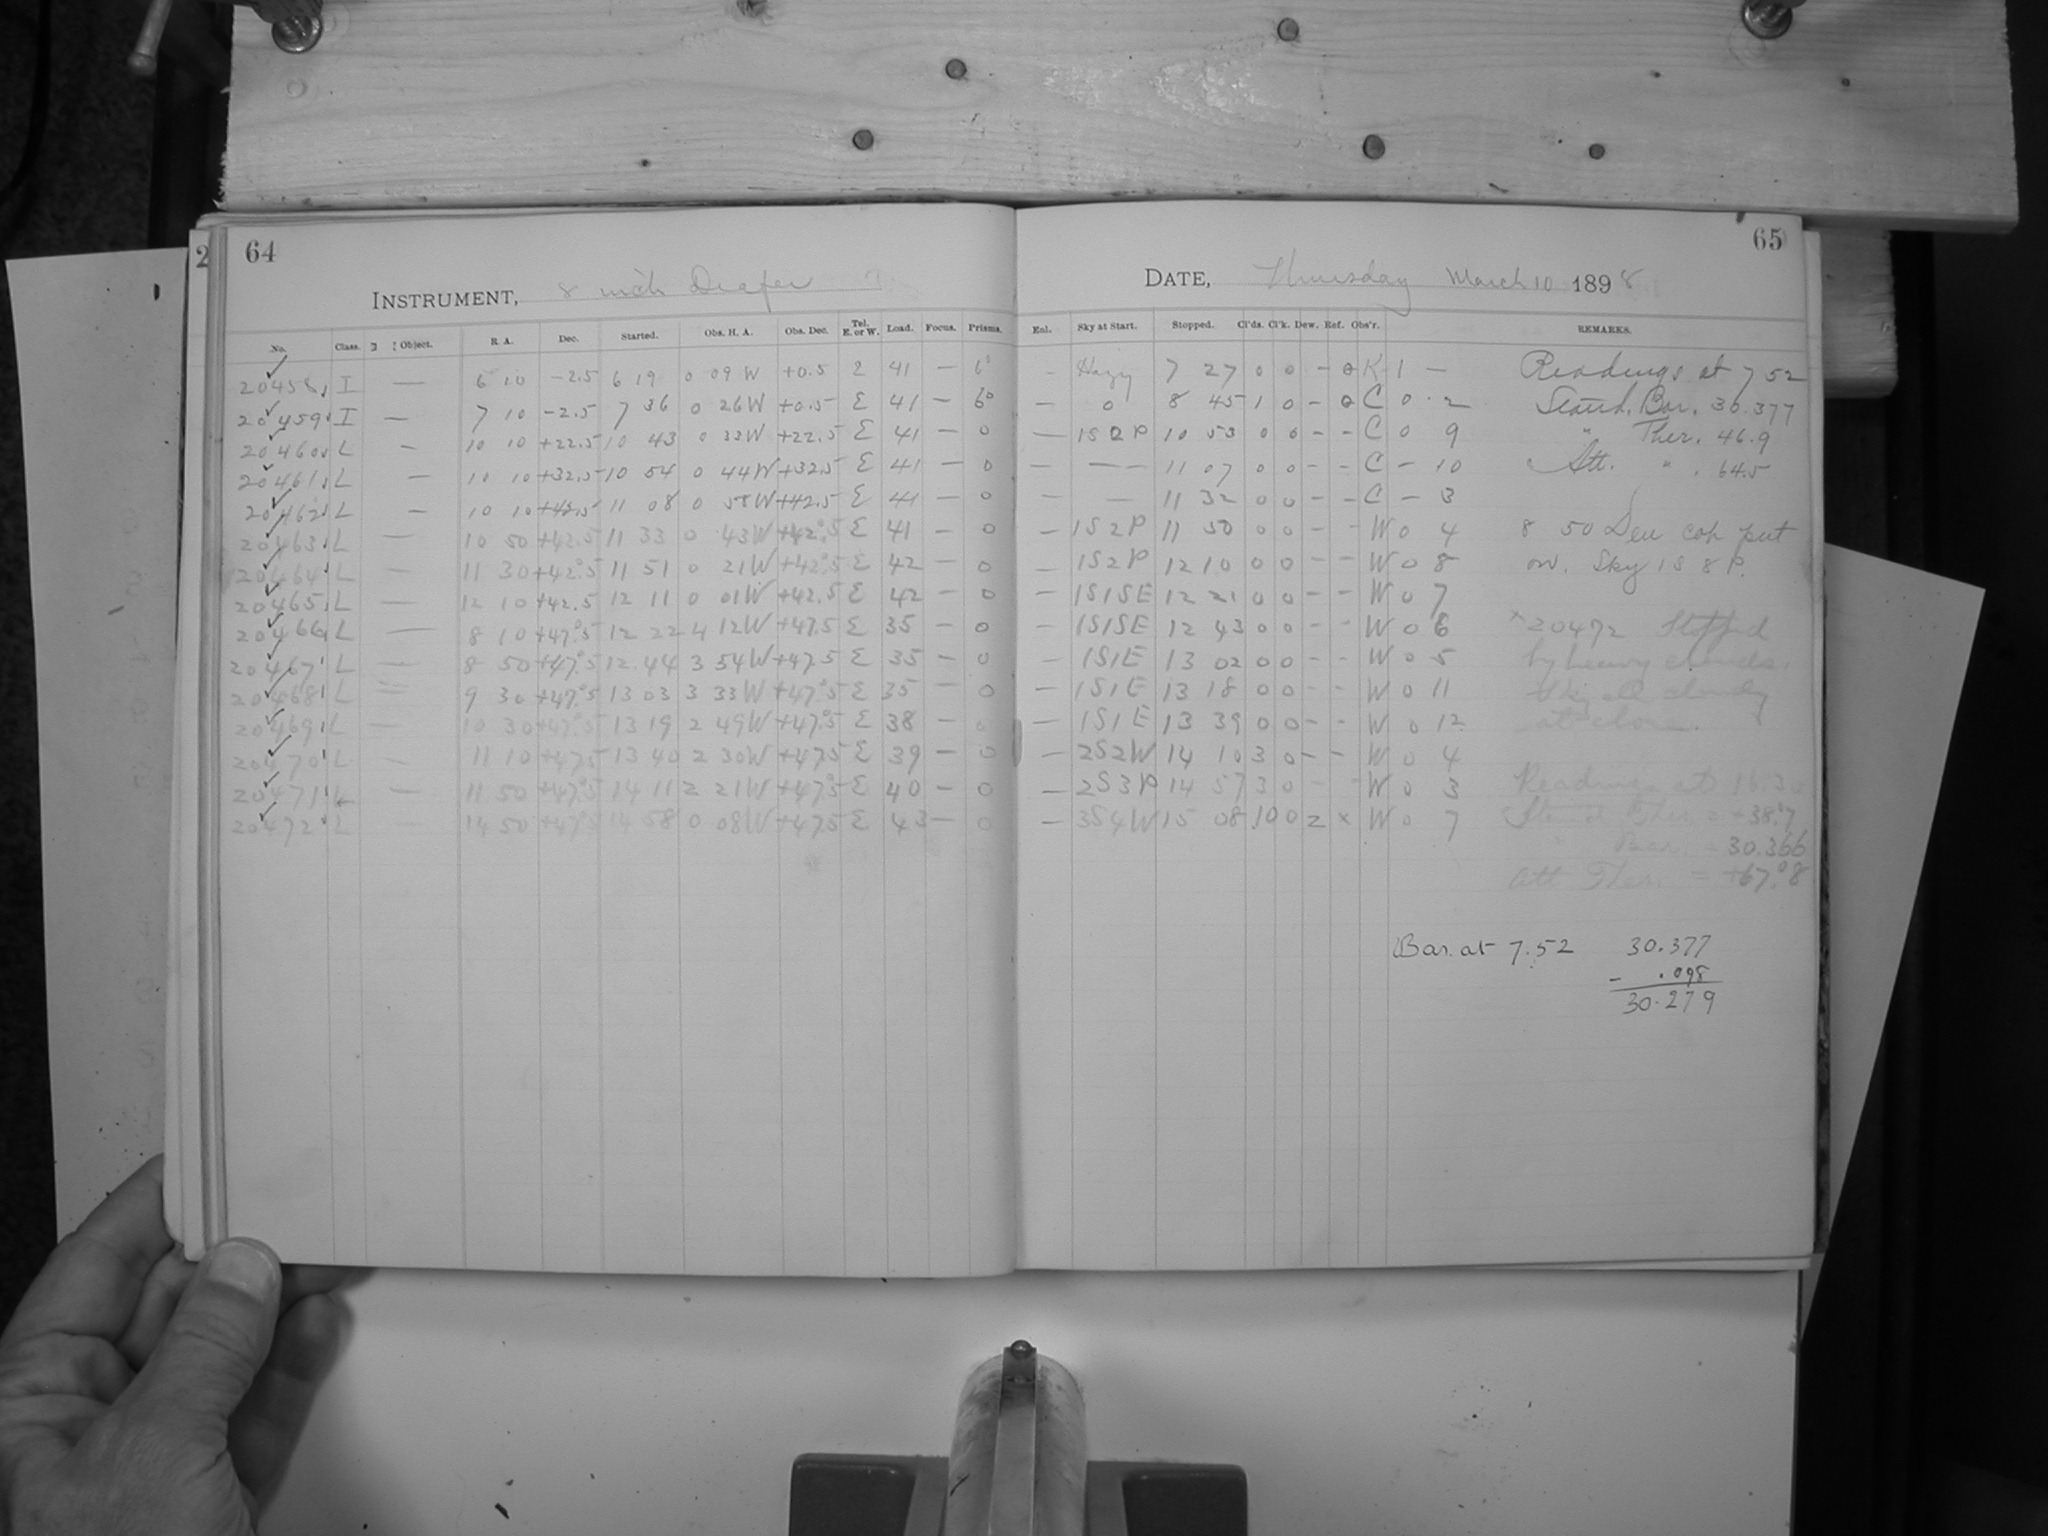 2
64
INSTRUMENT, 8 inch Draper
No. Class. Object. R. A. Dec. Started. Obs. H. A. Obs. Dec. Tel. E. or W. Load. Focus. Prisms.
20458 I — 6 10 -2.5 6 19 0 09 W +0.5 E 41 — 6°
20459 I — 7 10 -2.5 7 36 0 26 W +0.5 E 41 — 6°
20460 L — 10 10 +22.5 10 43 0 33 W +22.5 E 41 — 0
20461 L — 10 10 +32.5 10 54 0 44 W +32.5 E 41 — 0
20462 L — 10 10 +42.5 11 08 0 58 W +42.5 E 41 — 0
20463 L — 10 50 +42.5 11 33 0 43 W +42°.5 E 41 — 0
20464 L — 11 30 +42°.5 11 51 0 21 W +42°.5 E 42 — 0
20465 L — 12 10 +42.5 12 11 0 01 W +42.5 E 42 — 0
20466 L — 8 10 +47°.5 12 22 4 12 W +47.5 E 35 — 0
20467 L — 8 50 +47°.5 12 44 3 54 W +47.5 E 35 — 0
20468 L — 9 30 +47°.5 13 03 3 33 W +47°.5 E 35 — 0
20469 L — 10 30 +47°.5 13 19 2 49 W +47°.5 E 38 — 0
20470 L — 11 10 +47.5 13 40 2 30 W +47.5 E 39 — 0
20471 L — 11 50 +47°.5 14 11 2 21 W +47°.5 E 40 — 0
20472 L — 14 50 +47°.5 14 58 0 08 W +47.5 E 43 — 0
65
DATE, Thursday March 10 1898
Enl. Sky at Start. Stopped. Cl'ds. Cl'k. Dew. Ref. Obs'r. REMARKS.
— Hazy 7 27 0 0 — 0 K 1 — Readings at 7 52
— 0 8 45 1 0 — 0 C 0 . 2 Stand. Bar. 30.377
— 1S2P 10 53 0 0 — — C 0 9 " Ther. 46.9
— — 11 07 0 0 — — C — 10 Att. " . 64.5
— — 11 32 0 0 — — C — 3
— 1S2P 11 50 0 0 — — W 0 4 8 50 Dew cap put
— 1S2P 12 10 0 0 — — W 0 8 on. Sky 1S 8P.
— 1S1SE 12 21 0 0 — — W 0 7
— 1S1SE 12 43 0 0 — — W 0 6 ×20472 Stopped
— 1S1E 13 02 0 0 — — W 0 5 by heavy clouds.
— 1S1E 13 18 0 0 — — W 0 11 Sky all cloudy
— 1S1E 13 39 0 0 — — W 0 12 at close.
— 2S2W 14 10 3 0 — — W 0 4
— 2S3P 14 57 3 0 — — W 0 3 Readings at 16.30
— 3S4W 15 08 10 0 2 × W 0 7 Stand Ther. = +38.°7
" Bar. = 30.366
Att. Ther. = +67.°8
Bar. at 7.52 30.377
- .098
30.279